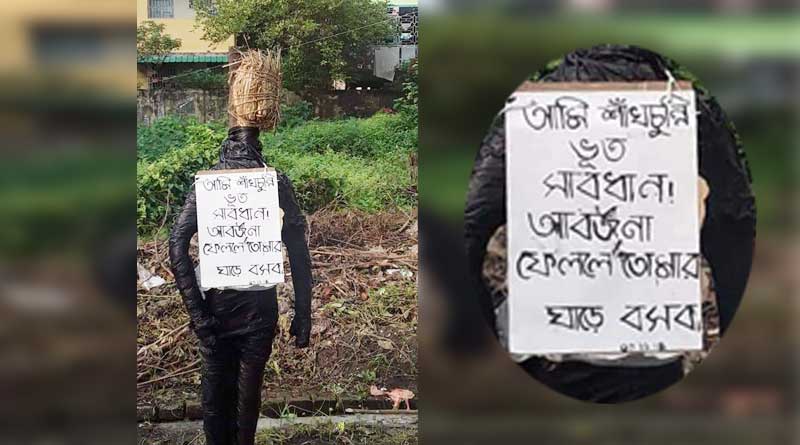 আমি শাঁখচুন্নি
ভূত
সাবধান!
আবর্জনা
ফেললে তোমার
ঘাড়ে বসব
আমি শাঁখচুন্নি
ভূত
সাবধান!
আবর্জনা
ফেললে তোমার
ঘাড়ে বসব